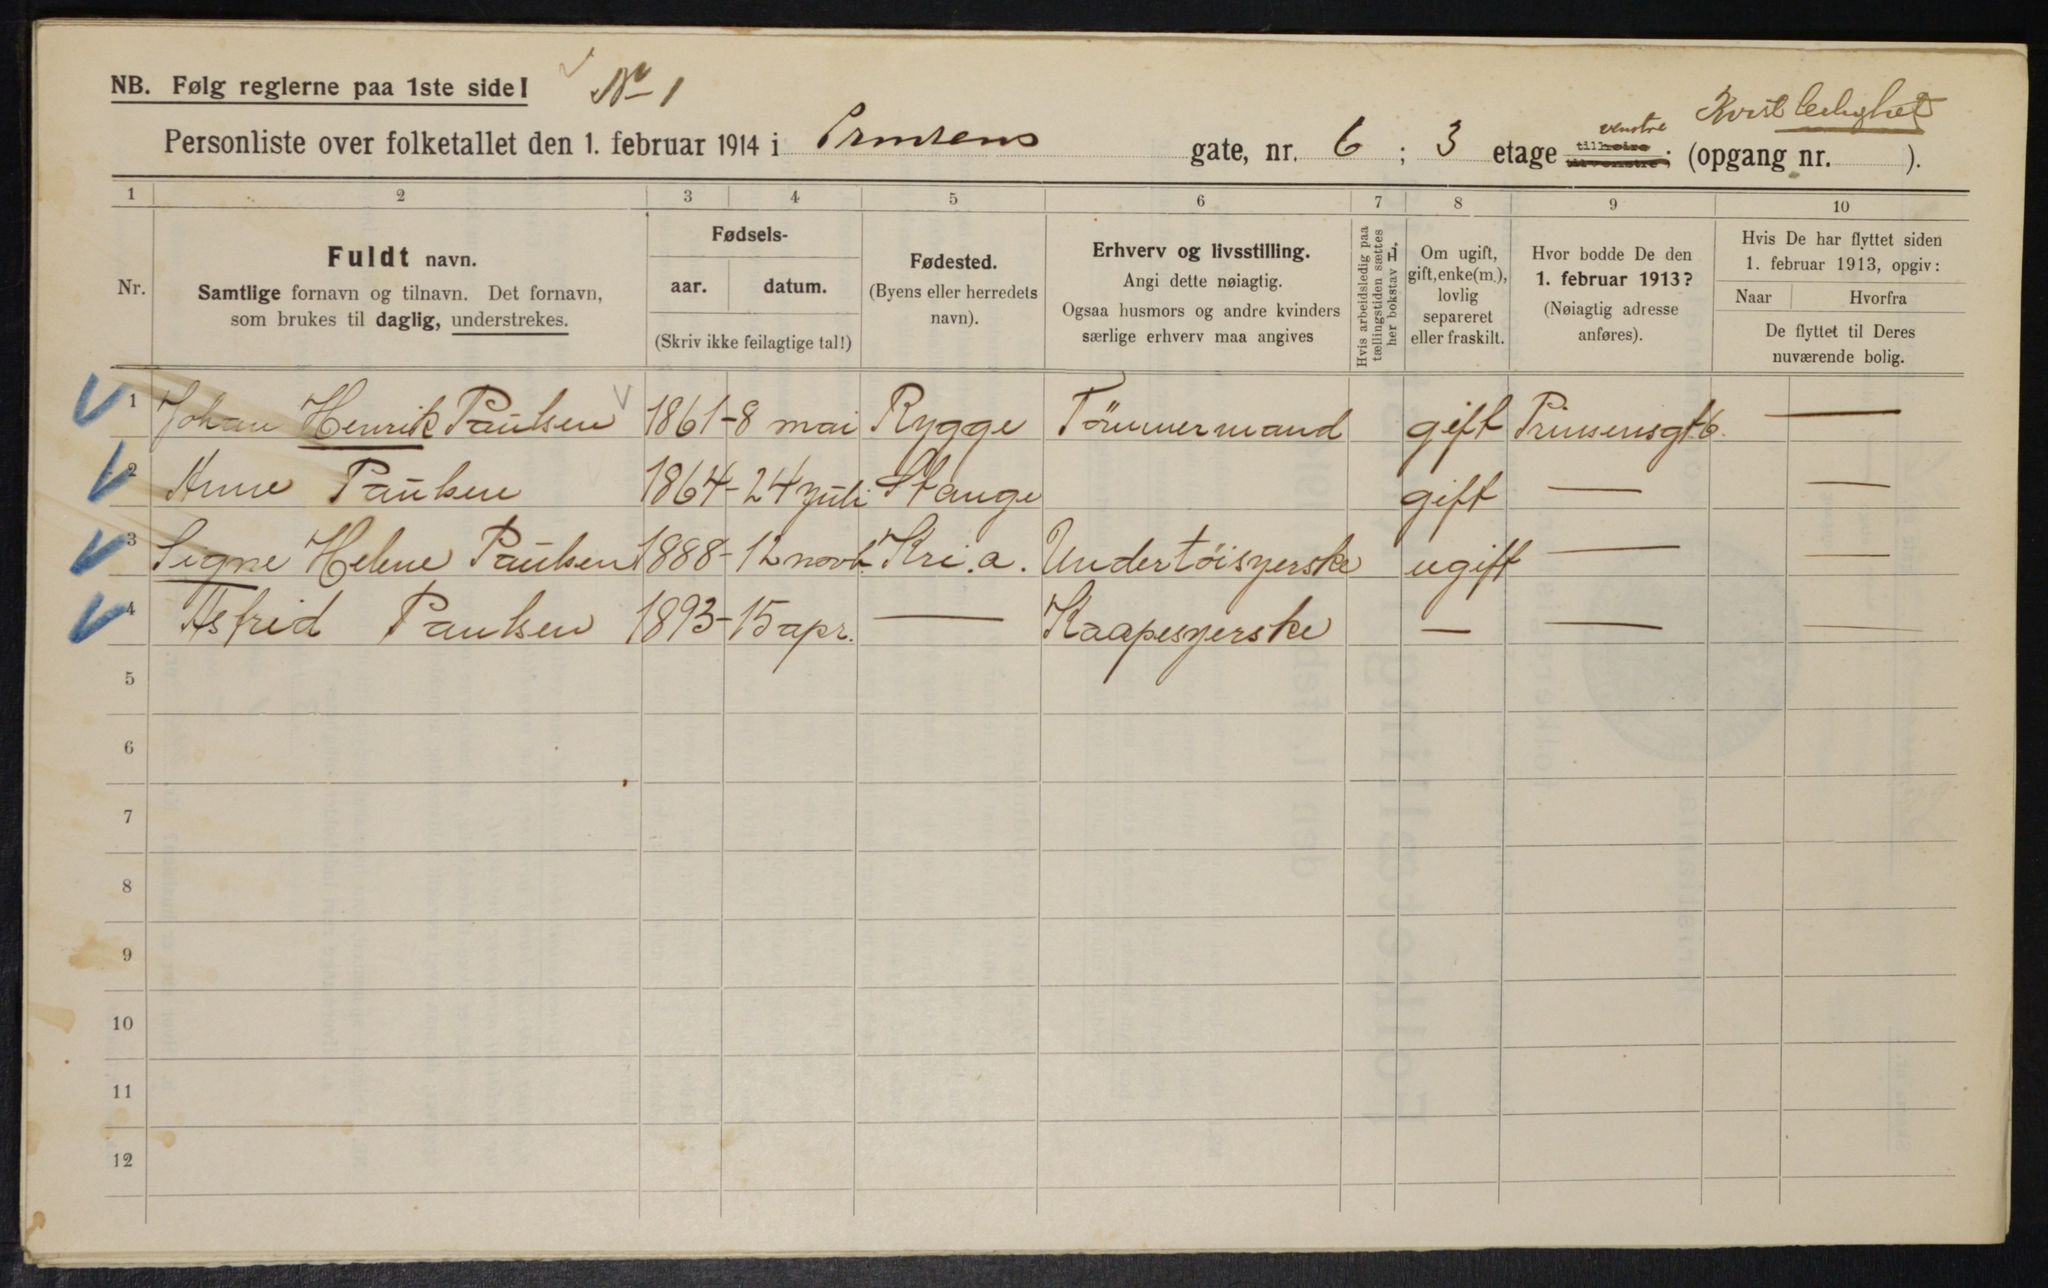 NB. Følg reglerne paa 1ste side! No 1
Kvistleilighet
Personliste over folketallet den 1. februar 1914 i Prinsens gate, nr. 6 ; 3 etage venstre til høire til venstre ; (opgang nr. ).
1 2 3 4 5 6 7 8 9 10
Nr.
Fuldt navn.
Samtlige fornavn og tilnavn. Det fornavn,
som brukes til daglig, understrekes.
Fødsels-
aar. datum.
(Skriv ikke feilagtige tal!)
Fødested.
(Byens eller herredets
navn).
Erhverv og livsstilling.
Angi dette nøiagtig.
Ogsaa husmors og andre kvinders
særlige erhverv maa angives
Hvis arbeidsledig paa
tællingstiden sættes
her bokstav L.
Om ugift,
gift, enke(m.),
lovlig
separeret
eller fraskilt.
Hvor bodde De den
1. februar 1913?
(Nøiagtig adresse
anføres).
Hvis De har flyttet siden
1. februar 1913, opgiv:
Naar Hvorfra
De flyttet til Deres
nuværende bolig.
1 Johan Henrik Paulsen 1861 - 8 mai Rygge Tömmermand gift Prinsensgt 6. —
2 Anne Paulsen 1864 - 24 juli Stange gift — —
3 Signe Helene Paulsen 1888 - 12 novb. Kri.a. Undertöisyerske ugift — —
4 Asfrid Paulsen 1893 - 15 apr. — Kaapesyerske — — —
5
6
7
8
9
10
11
12